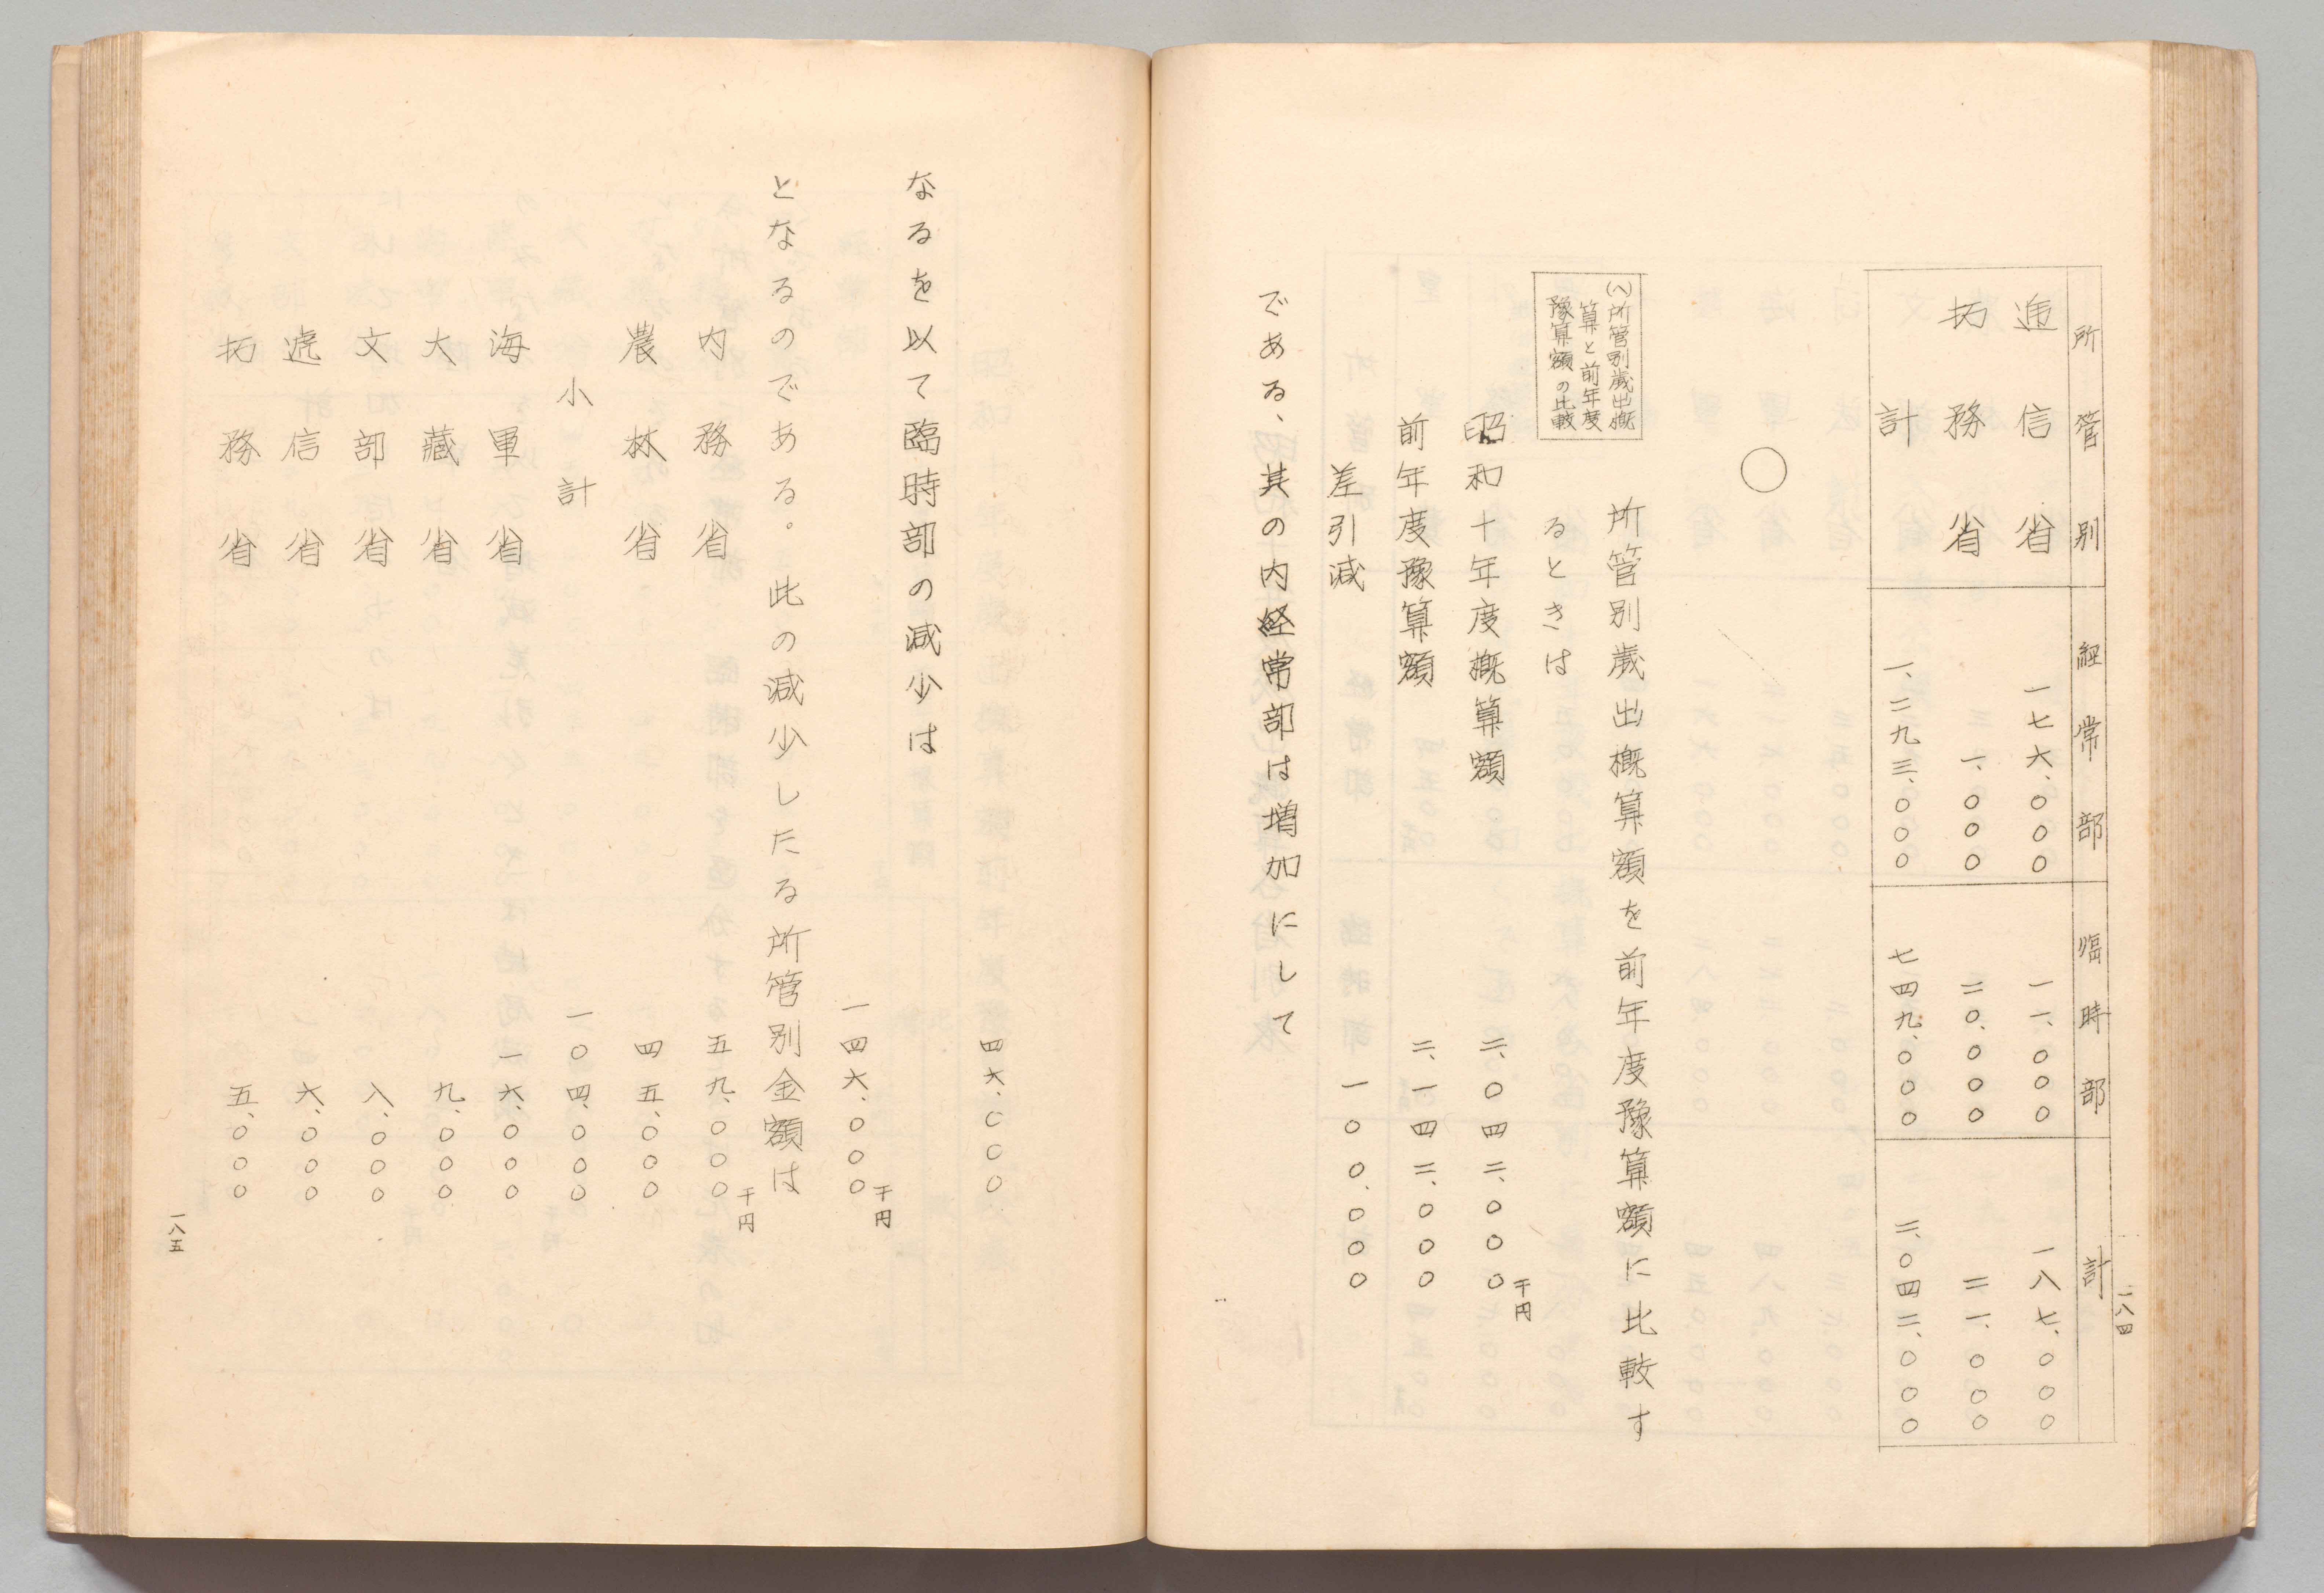 一八四
所管別 経常部 臨時部 計
逓信省 一七六、〇〇〇 一一、〇〇〇 一八七、〇〇〇
拓務省 一、〇〇〇 二〇、〇〇〇 二一、〇〇〇
計 一、二九三、〇〇〇 七四九、〇〇〇 二、〇四二、〇〇〇
〇
(ヘ)所管別歳出概
算と前年度
豫算額の比較
所管別歳出概算額を前年度豫算額に比較す
るときは
昭和十年度概算額 二、〇四二、〇〇〇千円
前年度豫算額 二、一四二、〇〇〇
差引減 一〇〇、〇〇〇
である、其の内経常部は増加にして
四六、〇〇〇
なるを以て臨時部の減少は
一四六、〇〇〇千円
となるのである。此の減少したる所管別金額は
内務省 五九、〇〇〇千円
農林省 四五、〇〇〇
小計 一〇四、〇〇〇
海軍省 一六、〇〇〇
大藏省 九、〇〇〇
文部省 八、〇〇〇
逓信省 六、〇〇〇
拓務省 五、〇〇〇
一八五